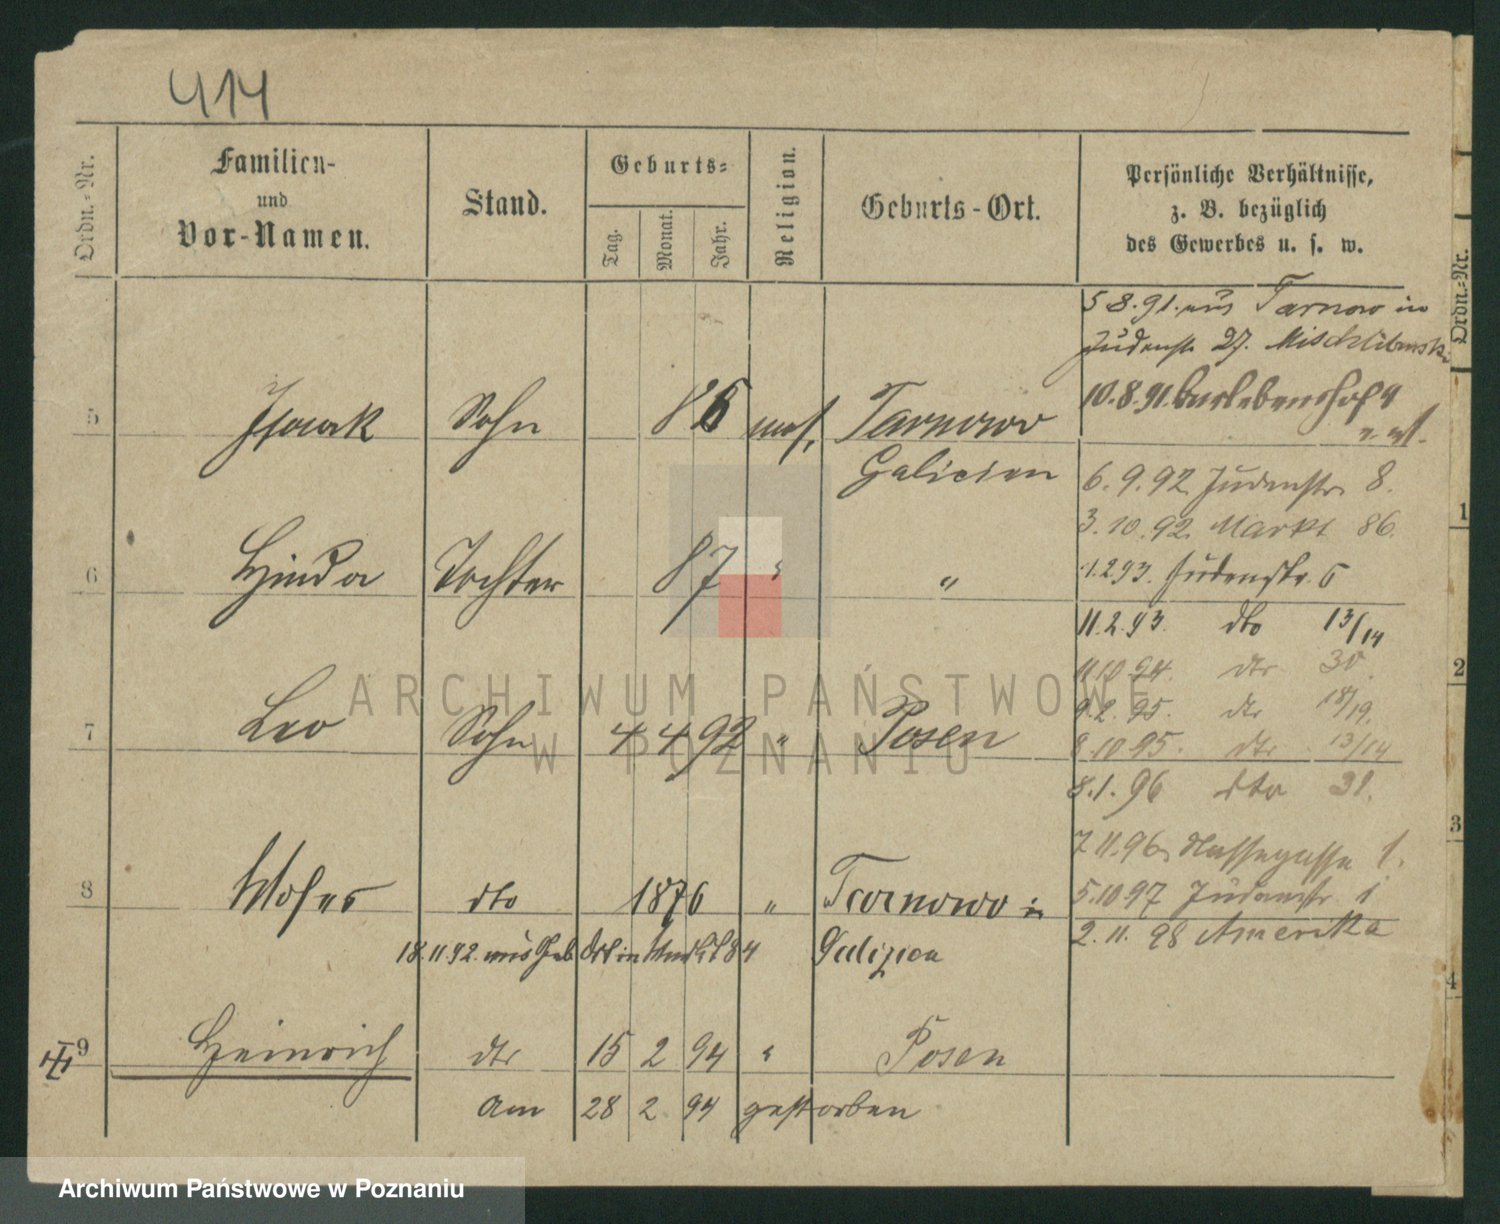 414
Ordn.-Nr.
Familien-
und
Vor-Namen.
Stand.
Geburts-
Tag.
Monat.
Jahr.
Religion.
Geburts-Ort.
Persönliche Verhältnisse,
z. B. bezüglich
des Gewerbes u. s. w.
Ordn.-Nr.
5.8.91. aus Tarnow in
Judenstr. 27.
10.8.91.
5 Isaak Sohn 86 mos. Tarnowo
Galicien
6.9.92. Judenstr. 8.
3.10.92. Markt 86.
6 Hinda Tochter 87 " "
1.2.93. Judenstr. 6
11.2.93. dto 13/14
11.10.94. dto 30.
7 Leo Sohn 4 4 92 " Posen
9.2.95. dto 18/19.
8.10.95. dto 13/14
8.1.96 dto 31.
7.11.96. Nassegasse 1.
8 Moses dto 1876 " Tarnowo in
Galizien
5.10.97 Judenstr. 1
2.11.98 Amerika
18.11.92. aus
9 Heinrich dto 15 2 94 " Posen
am 28 2 94 gestorben
1
2
3
4
ARCHIWUM PAŃSTWOWE
W POZNANIU
Archiwum Państwowe w Poznaniu